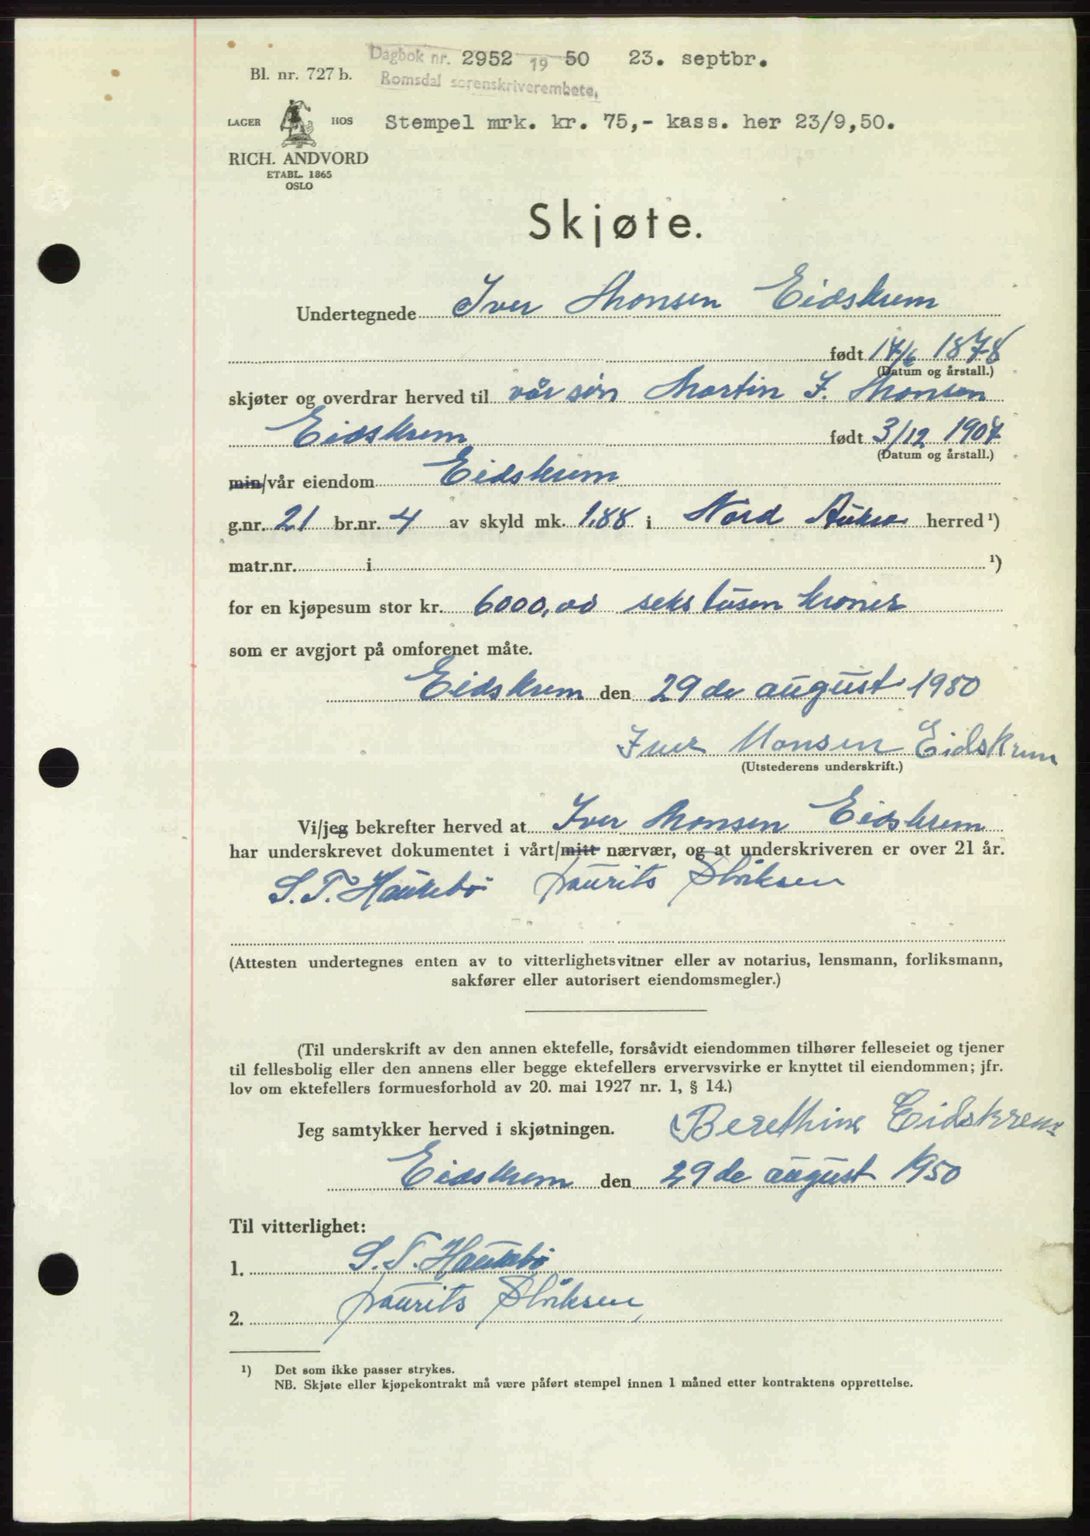 Dagbok nr. 2952 19 50 23. septbr.
Romsdal sorenskriverembete.
Bl. nr. 727 b.
LAGER HOS
Stempel mrk. kr. 75,- kass. her 23/9,50.
RICH. ANDVORD
ETABL. 1865
OSLO
Skjøte.
Undertegnede Iver Monsen Eidskrem
født 17/6 1878
(Datum og årstall.)
skjøter og overdrar herved til vår søn Martin I. Monsen
Eidskrem født 3/12 1907
(Datum og årstall.)
min/vår eiendom Eidskrem
g.nr. 21 br.nr. 4 av skyld mk. 1.88 i Nord Aukra herred ¹)
matr.nr. i ¹)
for en kjøpesum stor kr. 6000,00 seks tusen kroner
som er avgjort på omforenet måte.
Eidskrem den 29 de august 1950
Iver Monsen Eidskrem
(Utstederens underskrift.)
Vi/jeg bekrefter herved at Iver Monsen Eidskrem
har underskrevet dokumentet i vårt/mitt nærvær, og at underskriveren er over 21 år.
S. T. Haukebø Laurits
(Attesten undertegnes enten av to vitterlighetsvitner eller av notarius, lensmann, forliksmann,
sakfører eller autorisert eiendomsmegler.)
(Til underskrift av den annen ektefelle, forsåvidt eiendommen tilhører felleseiet og tjener
til fellesbolig eller den annens eller begge ektefellers ervervsvirke er knyttet til eiendommen; jfr.
lov om ektefellers formuesforhold av 20. mai 1927 nr. 1, § 14.)
Jeg samtykker herved i skjøtningen. Berethine Eidskrem
Eidskrem den 29 de august 1950
Til vitterlighet:
1. S. T. Haukebø
2. Laurits
¹) Det som ikke passer strykes.
NB. Skjøte eller kjøpekontrakt må være påført stempel innen 1 måned etter kontraktens opprettelse.